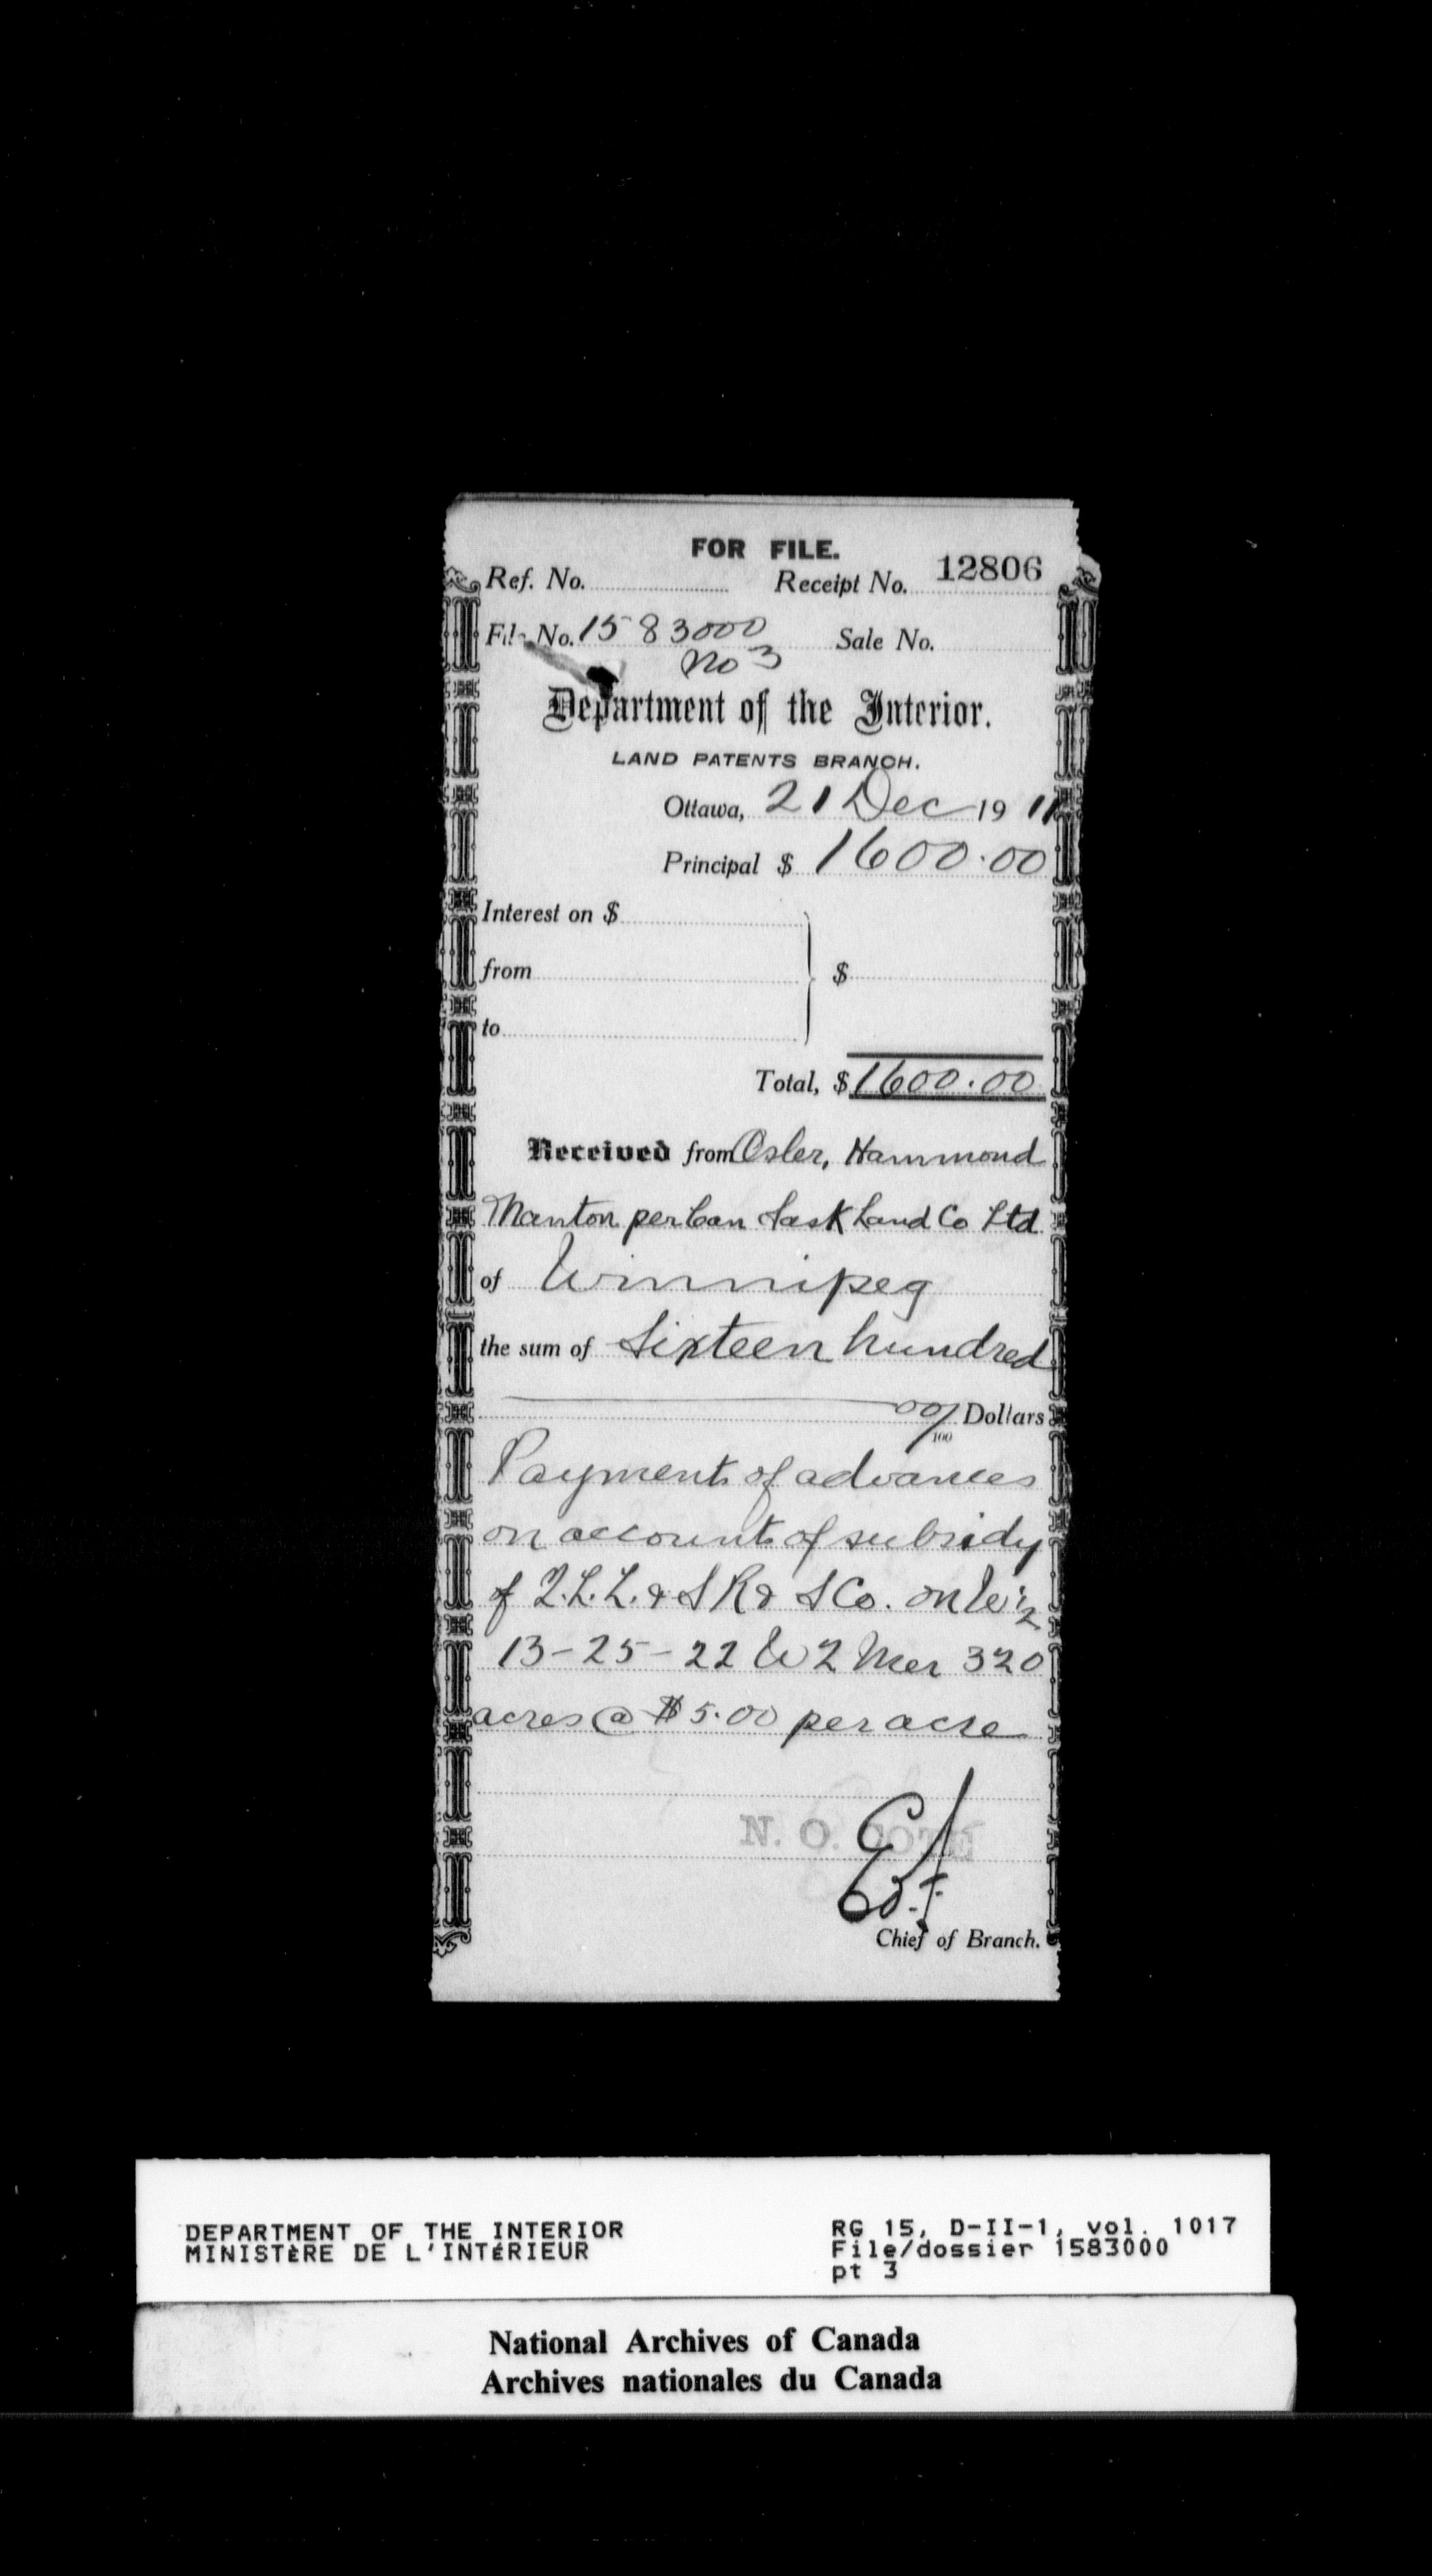 FOR FILE.
Ref. No. Receipt No. 12806
File No. 1583000 Sale No.
No 3
Department of the Interior.
LAND PATENTS BRANCH.
Ottawa, 21 Dec 1911
Principal $ 1600.00
Interest on $
from $
to
Total, $ 1600.00
Received from Osler, Hammond
Manton per Can Sask Land Co Ltd
of Winnipeg
the sum of Sixteen hundred
00/100 Dollars
Payment of advances
on account of subsidy
of Q.L.L. & S R & S Co. on W ½
13-25-22 W 2 Mer 320
acres @ $5.00 per acre
N. O. COTE
Chief of Branch.
DEPARTMENT OF THE INTERIOR
MINISTÈRE DE L'INTÉRIEUR
RG 15, D-II-1, vol. 1017
File/dossier 1583000
pt 3
National Archives of Canada
Archives nationales du Canada